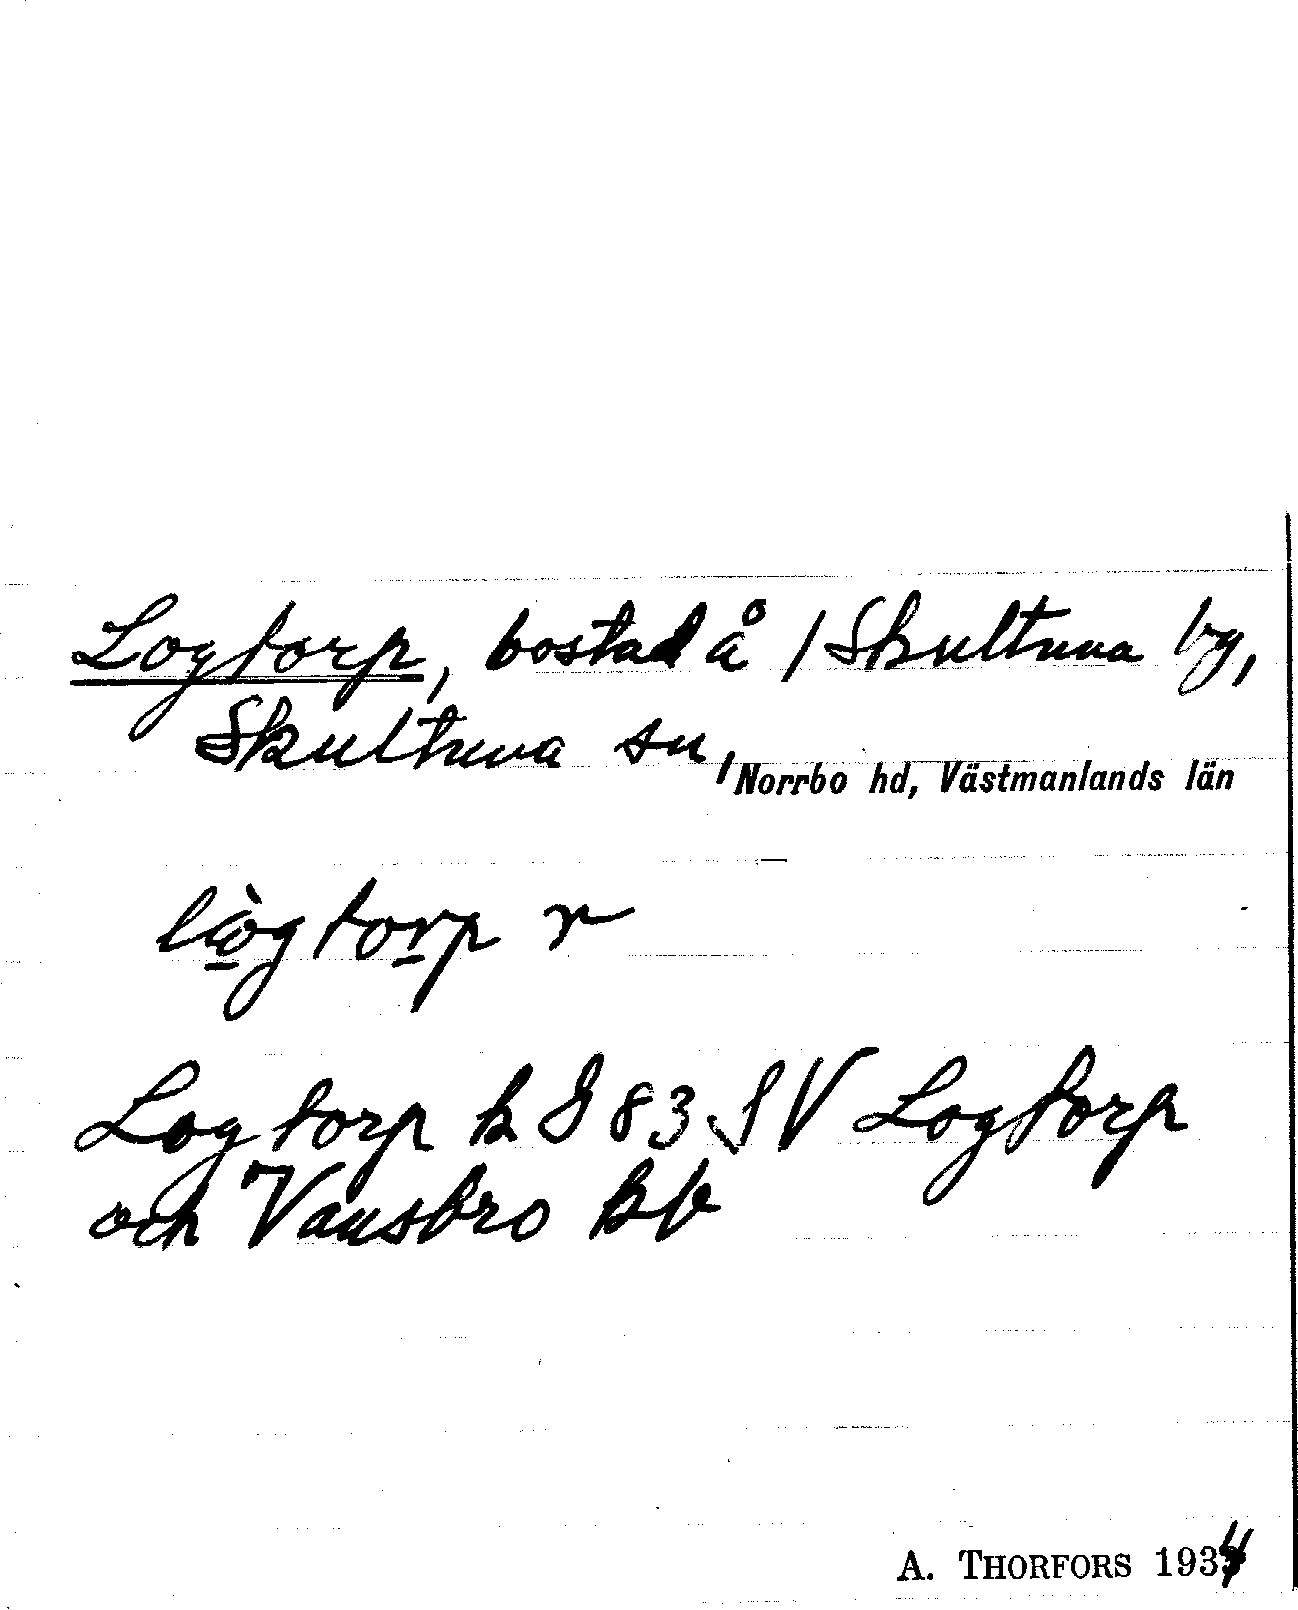 Logtorp, bostad å / Skultuna by,
Skultuna sn, Norrbo hd, Västmanlands län
lògtorp r
Logtorp k 8 83 SV Logtorp
och Vansbro kb
A. THORFORS 1934